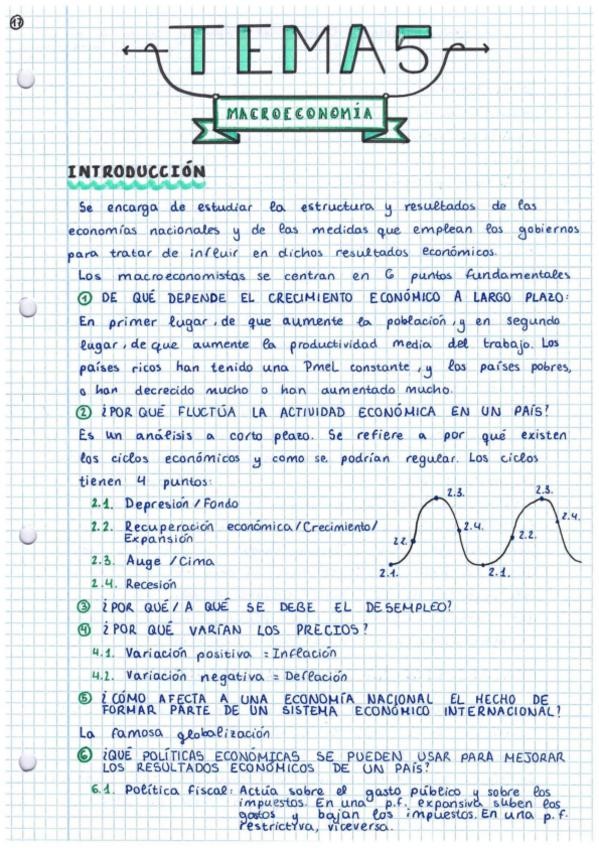 17
TEMA 5
MACROECONOMÍA
INTRODUCCIÓN
Se encarga de estudiar la estructura y resultados de las
economías nacionales y de las medidas que emplean los gobiernos
para tratar de influir en dichos resultados económicos.
Los macroeconomistas se centran en 6 puntos fundamentales
① DE QUÉ DEPENDE EL CRECIMIENTO ECONÓMICO A LARGO PLAZO:
En primer lugar, de que aumente la población, y en segundo
lugar, de que aumente la productividad media del trabajo. Los
países ricos han tenido una PmeL constante, y los países pobres,
o han decrecido mucho o han aumentado mucho.
② ¿POR QUÉ FLUCTÚA LA ACTIVIDAD ECONÓMICA EN UN PAÍS?
Es un análisis a corto plazo. Se refiere a por qué existen
los ciclos económicos y como se podrían regular. Los ciclos
tienen 4 puntos:
2.1. Depresión / Fondo
2.2. Recuperación económica / Crecimiento /
Expansión
2.3. Auge / Cima
2.4. Recesión
2.1. 2.2. 2.3. 2.4. 2.1. 2.2. 2.3. 2.4.
③ ¿POR QUÉ / A QUÉ SE DEBE EL DESEMPLEO?
④ ¿POR QUÉ VARÍAN LOS PRECIOS?
4.1. Variación positiva = Inflación
4.2. Variación negativa = Deflación
⑤ ¿CÓMO AFECTA A UNA ECONOMÍA NACIONAL EL HECHO DE
FORMAR PARTE DE UN SISTEMA ECONÓMICO INTERNACIONAL?
La famosa globalización
⑥ ¿QUÉ POLÍTICAS ECONÓMICAS SE PUEDEN USAR PARA MEJORAR
LOS RESULTADOS ECONÓMICOS DE UN PAÍS?
6.1. Política fiscal: Actúa sobre el gasto público y sobre los
impuestos. En una p.f. expansiva suben los
gastos y bajan los impuestos. En una p.f.
restrictiva, viceversa.